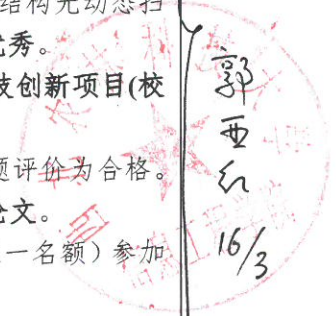 结构光动态扫
优秀。
技创新项目(校
题评价为合格。
论文。
一名额）参加
郭亚红
16/3